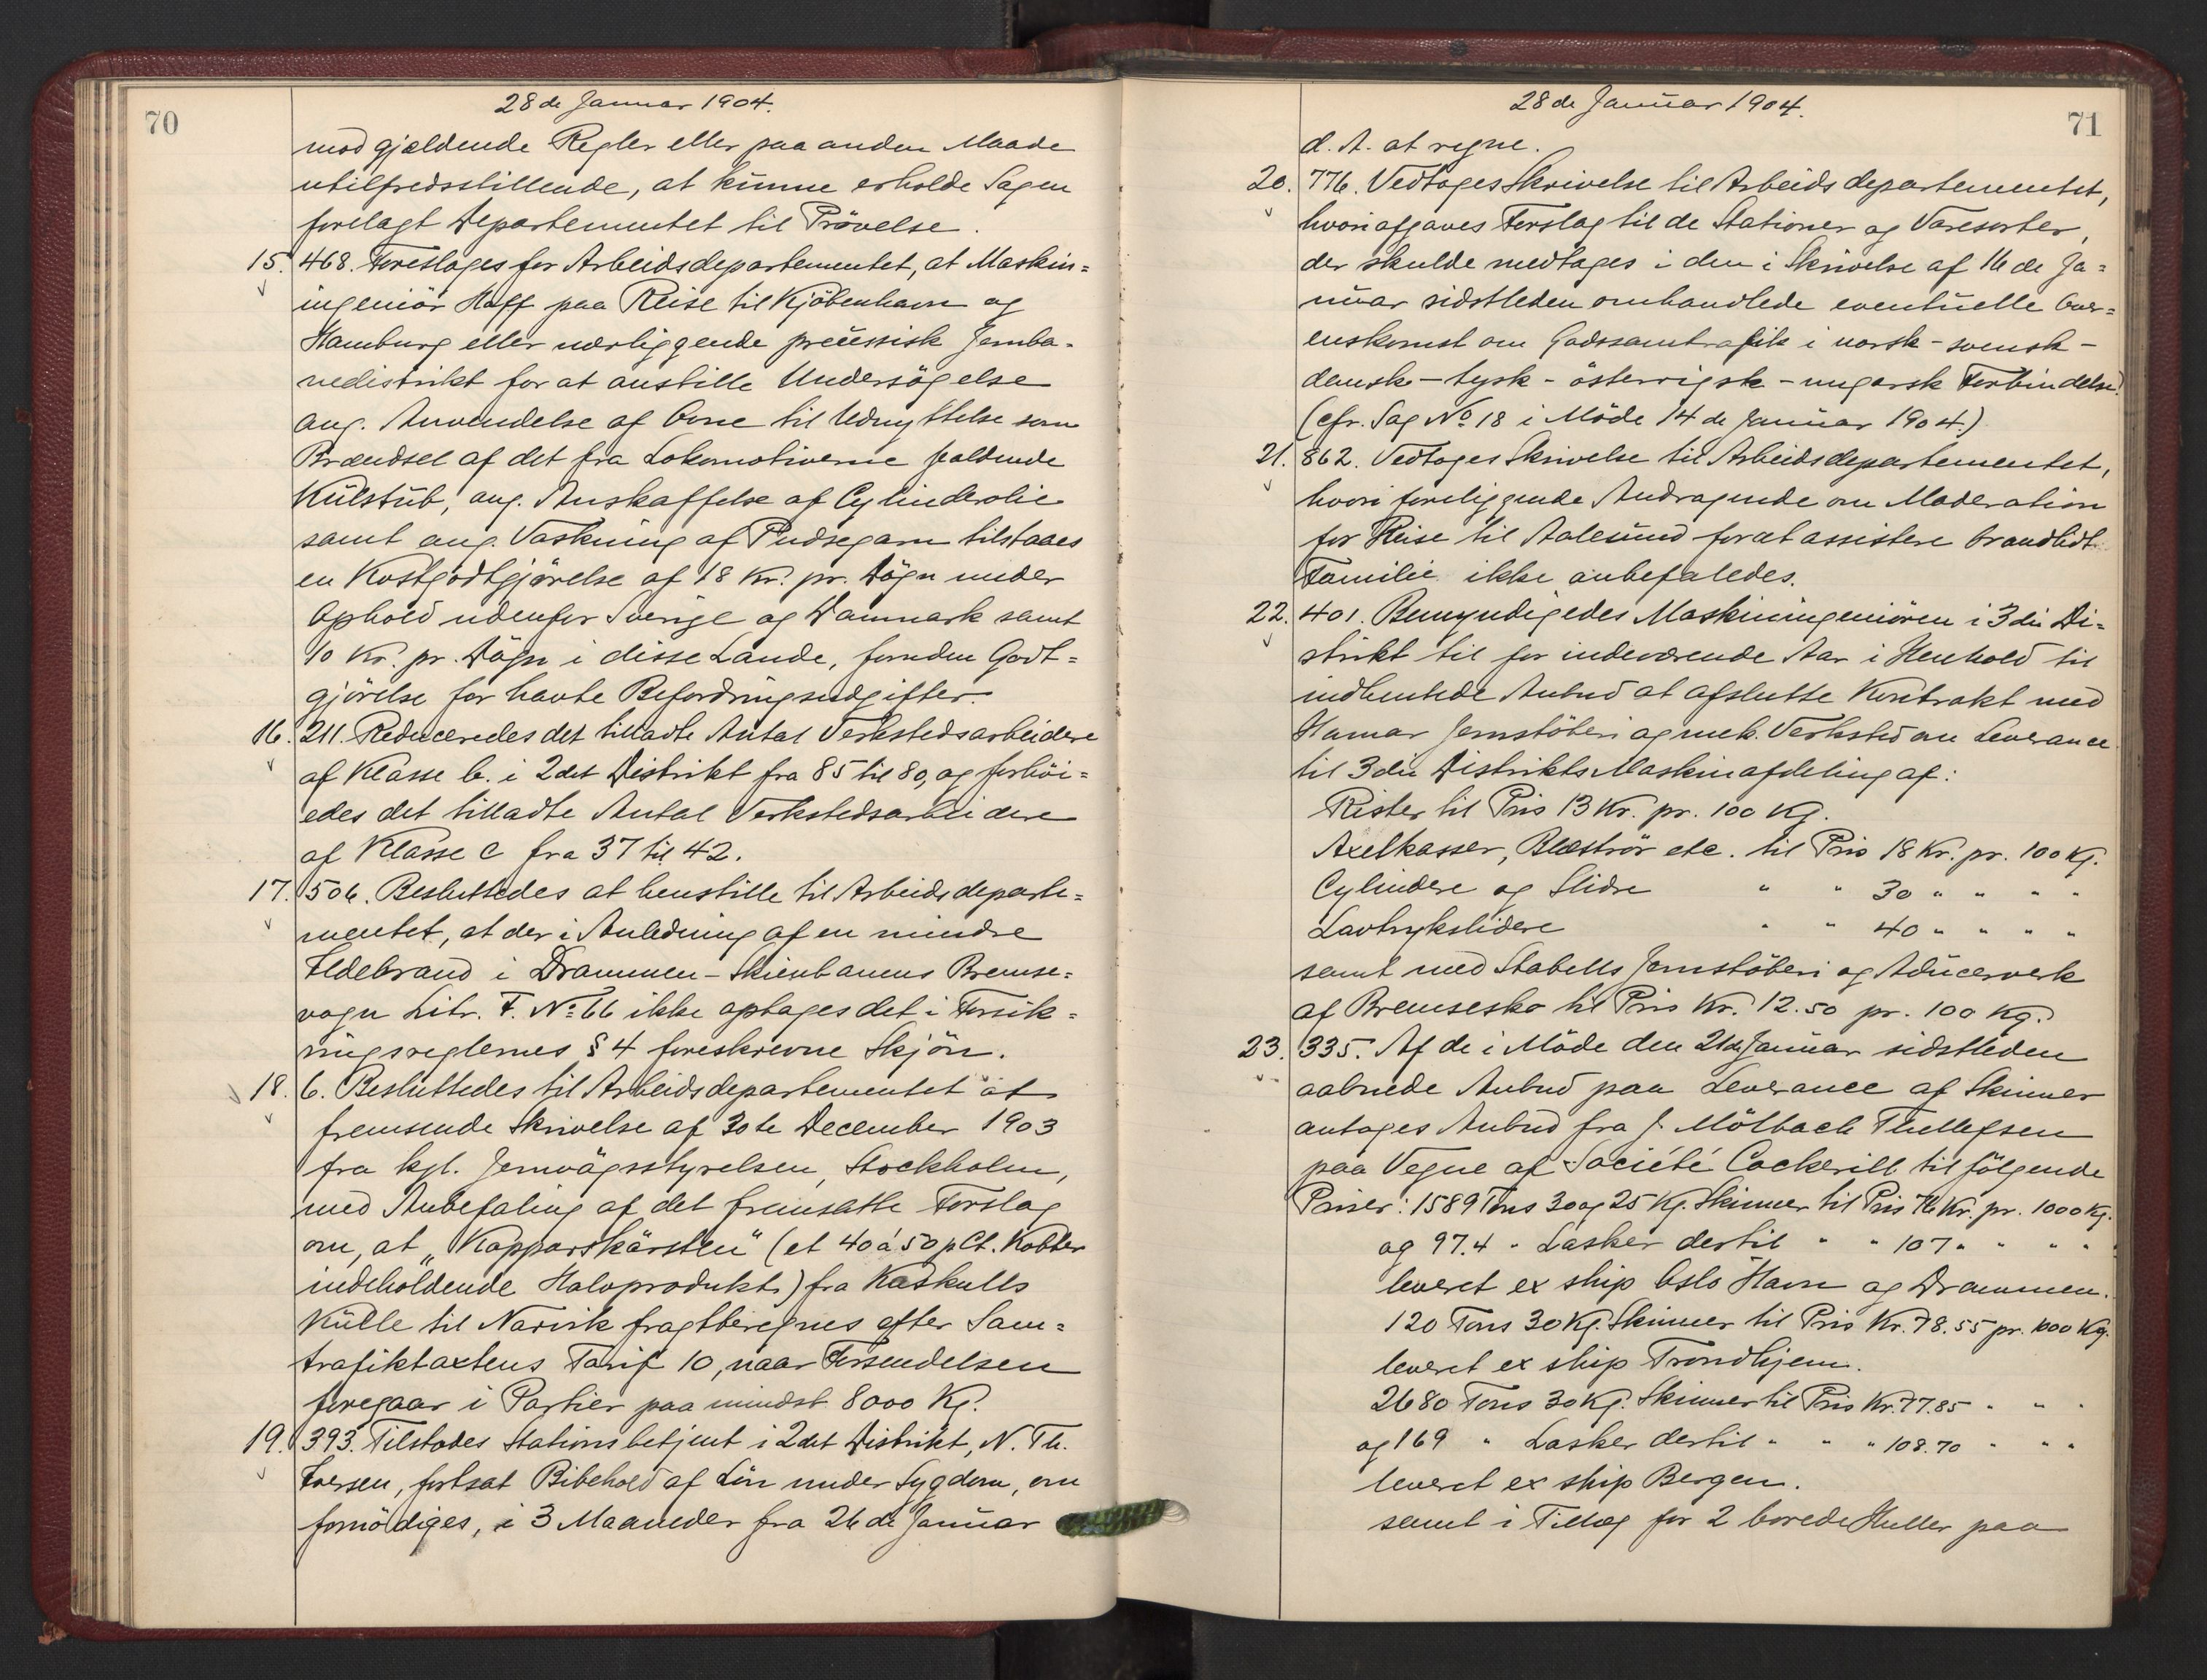 70
28 de Januar 1904.
mod gjældende Regler eller paa anden Maade
utilfredsstillende, at kunne erholde Sagen
forelagt Departementet til Prövelse.
15. 468. Foreslages for Arbeidsdepartementet, at Maskin=
ingeniör Hoff paa Reise til Kjöbenhavn og
Hamburg eller nærliggende preussisk Jernba=
nedistrikt for at anstille Undersögelse
ang. Anvendelse af Ovne til Udnyttelse som
Brændsel af det fra Lokomotiverne faldende
Kulstub, ang. Anskaffelse af Cylinderolie
samt ang. Vaskning af Pudsegarn tilstaaes
en Kostgodtgjörelse af 18 Kr. pr. Dögn under
Ophold udenfor Sverige og Danmark samt
10 Kr. pr. Dögn i disse Lande, foruden Godt=
gjörelse for havte Befordringsudgifter.
16. 211. Reduceredes det tilladte Antal Verkstedsarbeidere
af Klasse b. i 2det Distrikt fra 85 til 80, og forhöi=
edes det tilladte Antal Verkstedsarbeidere
af Klasse c fra 37 til 42.
17. 506. Besluttedes at henstille til Arbeidsdeparte=
mentet, at der i Anledning af en mindre
Ildebrand i Drammen-Skienbanens Bremse=
vogn Litr. F. No 66 ikke optages det i Forsik=
ringsreglernes § 4 foreskrevne Skjön.
18. 6. Besluttedes til Arbeidsdepartementet at
fremsende Skrivelse af 30te December 1903
fra kgl. Jernvägsstyrelsen, Stockholm,
med Anbefaling af det fremsatte Forslag
om, at "Kopparskärsten" (et 40 á 50 pCt. Kobber
indeholdende Halvprodukt) fra Kaskulls
Kulle til Narvik fragtberegnes efter Sam=
trafiktaxtens Tarif 10, naar Forsendelsen
foregaar i Partier paa mindst 8000 Kg.
19. 393. Tilstodes Stationsbetjent i 2det Distrikt, N. Th.
Iversen, fortsat Bibehold af Lön under Sygdom, om
fornödiges, i 3 Maaneder fra 26 de Januar
71
28 de Januar 1904.
d. A. at regne.
20. 776. Vedtoges Skrivelse til Arbeidsdepartementet,
hvori afgaves Forslag til de Stationer og Varesorter,
der skulde medtages i den i Skrivelse af 16 de Ja=
nuar sidstleden omhandlede eventuelle Over=
enskomst om Godssamtrafik i norsk-svensk-
dansk-tysk-österrigsk-ungarsk Forbindelse.
(cfr. Sag No 18 i Möde 14 de Januar 1904.)
21. 862. Vedtoges Skrivelse til Arbeidsdepartementet,
hvori foreliggende Andragende om Moderation
for Reise til Aalesund for at assistere brandlidt
Familie ikke anbefaledes.
22. 401. Bemyndigedes Maskiningeniören i 3die Di=
strikt til for indeværende Aar i Henhold til
indhentede Anbud at afslutte Kontrakt med
Hamar Jernstöberi og mek. Verksted om Leverance
til 3die Distrikts Maskinafdeling af:
Rister til Pris 13 Kr. pr. 100 Kg.
Axelkasser, Blæströr etc. til Pris 18 Kr. pr. 100 Kg.
Cylindere og Slidre " " 30 " " " "
Lavtrykslidere " " 40 " " " "
samt med Stabells Jernstöberi og Aducerverk
af Bremsesko til Pris Kr. 12.50 pr. 100 Kg.
23. 335. Af de i Möde den 21de Januar sidstleden
aabnede Anbud paa Leverance af Skinner
antoges Anbud fra J. Mölbach Thellefsen
paa Vegne af Société Cockerill til fölgende
Priser: 1589 Tons 30 og 25 Kg. Skinner til Pris 76 Kr. pr. 1000 Kg.
og 97.4 " Lasker dertil " " 107 " " " "
leveret ex ship Oslo Havn og Drammen.
120 Tons 30 Kg. Skinner til Pris Kr. 78.55 pr. 1000 Kg.
leveret ex ship Trondhjem.
2680 Tons 30 Kg. Skinner til Pris Kr. 77.85 " " "
og 169 " Lasker dertil " " " 108.70 " " "
leveret ex ship Bergen.
samt i Tillæg for 2 borede Huller paa